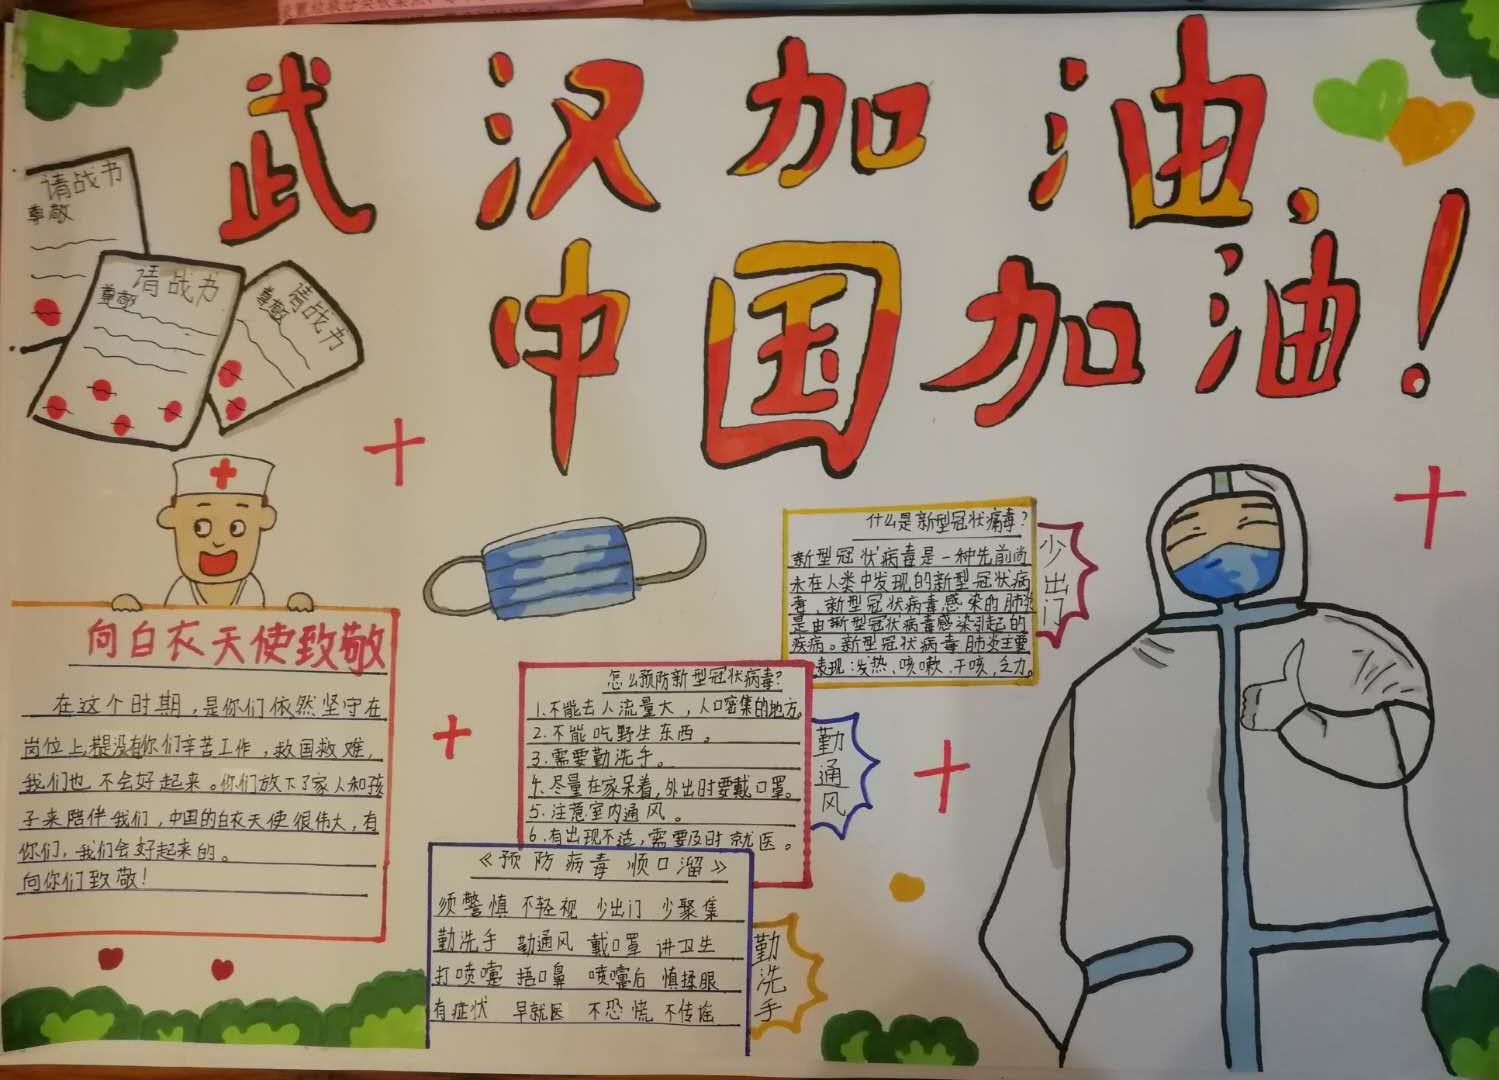 武汉加油，
中国加油！
请战书
尊敬
请战书
尊敬
请战书
尊敬
向白衣天使致敬
在这个时期，是你们依然坚守在
岗位上，没有你们辛苦工作，救国救难，
我们也不会好起来。你们放下了家人和孩
子来陪伴我们，中国的白衣天使很伟大，有
你们，我们会好起来的。
向你们致敬！
什么是新型冠状病毒？
新型冠状病毒是一种先前尚
未在人类中发现的新型冠状病
毒，新型冠状病毒感染的肺炎
是由新型冠状病毒感染引起的
疾病。新型冠状病毒肺炎主要
表现：发热、咳嗽、干咳，乏力。
少出门
怎么预防新型冠状病毒？
1.不能去人流量大，人口密集的地方。
2.不能吃野生东西。
3.需要勤洗手。
4.尽量在家呆着，外出时要戴口罩。
5.注意室内通风。
6.有出现不适，需要及时就医。
勤通风
《预防病毒顺口溜》
须警慎 不轻视 少出门 少聚集
勤洗手 勤通风 戴口罩 讲卫生
打喷嚏 捂口鼻 喷嚏后 慎揉眼
有症状 早就医 不恐慌 不传谣
勤洗手